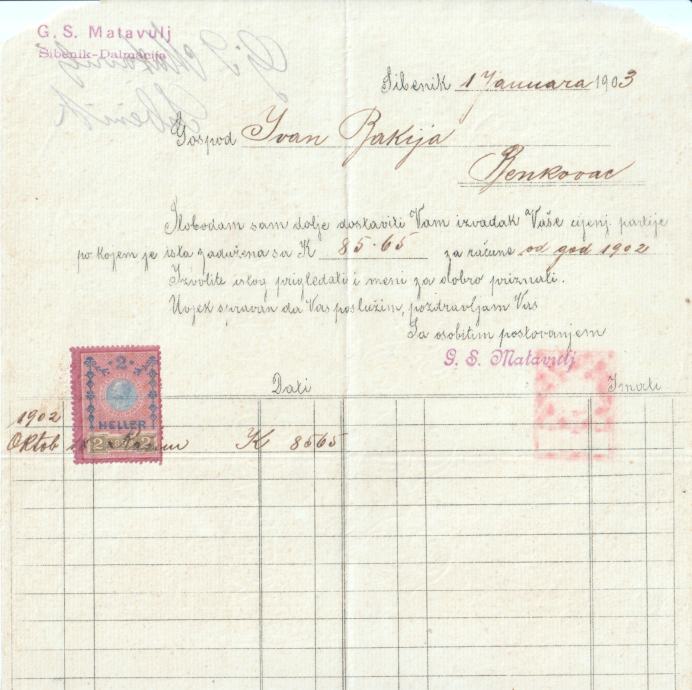 G. S. Matavulj
Šibenik-Dalmacija
Šibenik 1 Januara 1903
Gospod Ivan Bakija
Benkovac
Slobodam sam dolje dostaviti Vam izvadak Vaše cijenj. partije
po kojem je ista zadužena sa K 85·65 za račune od god 1902
Izvolite istog prigledati i meni za dobro priznati.
Uvjek spravan da Vas poslužim, pozdravljam Vas
Sa osobitim postovanjem
G. S. Matavulj
Dati Imati
2
HELLER
2 2
1902
Oktob K 8565